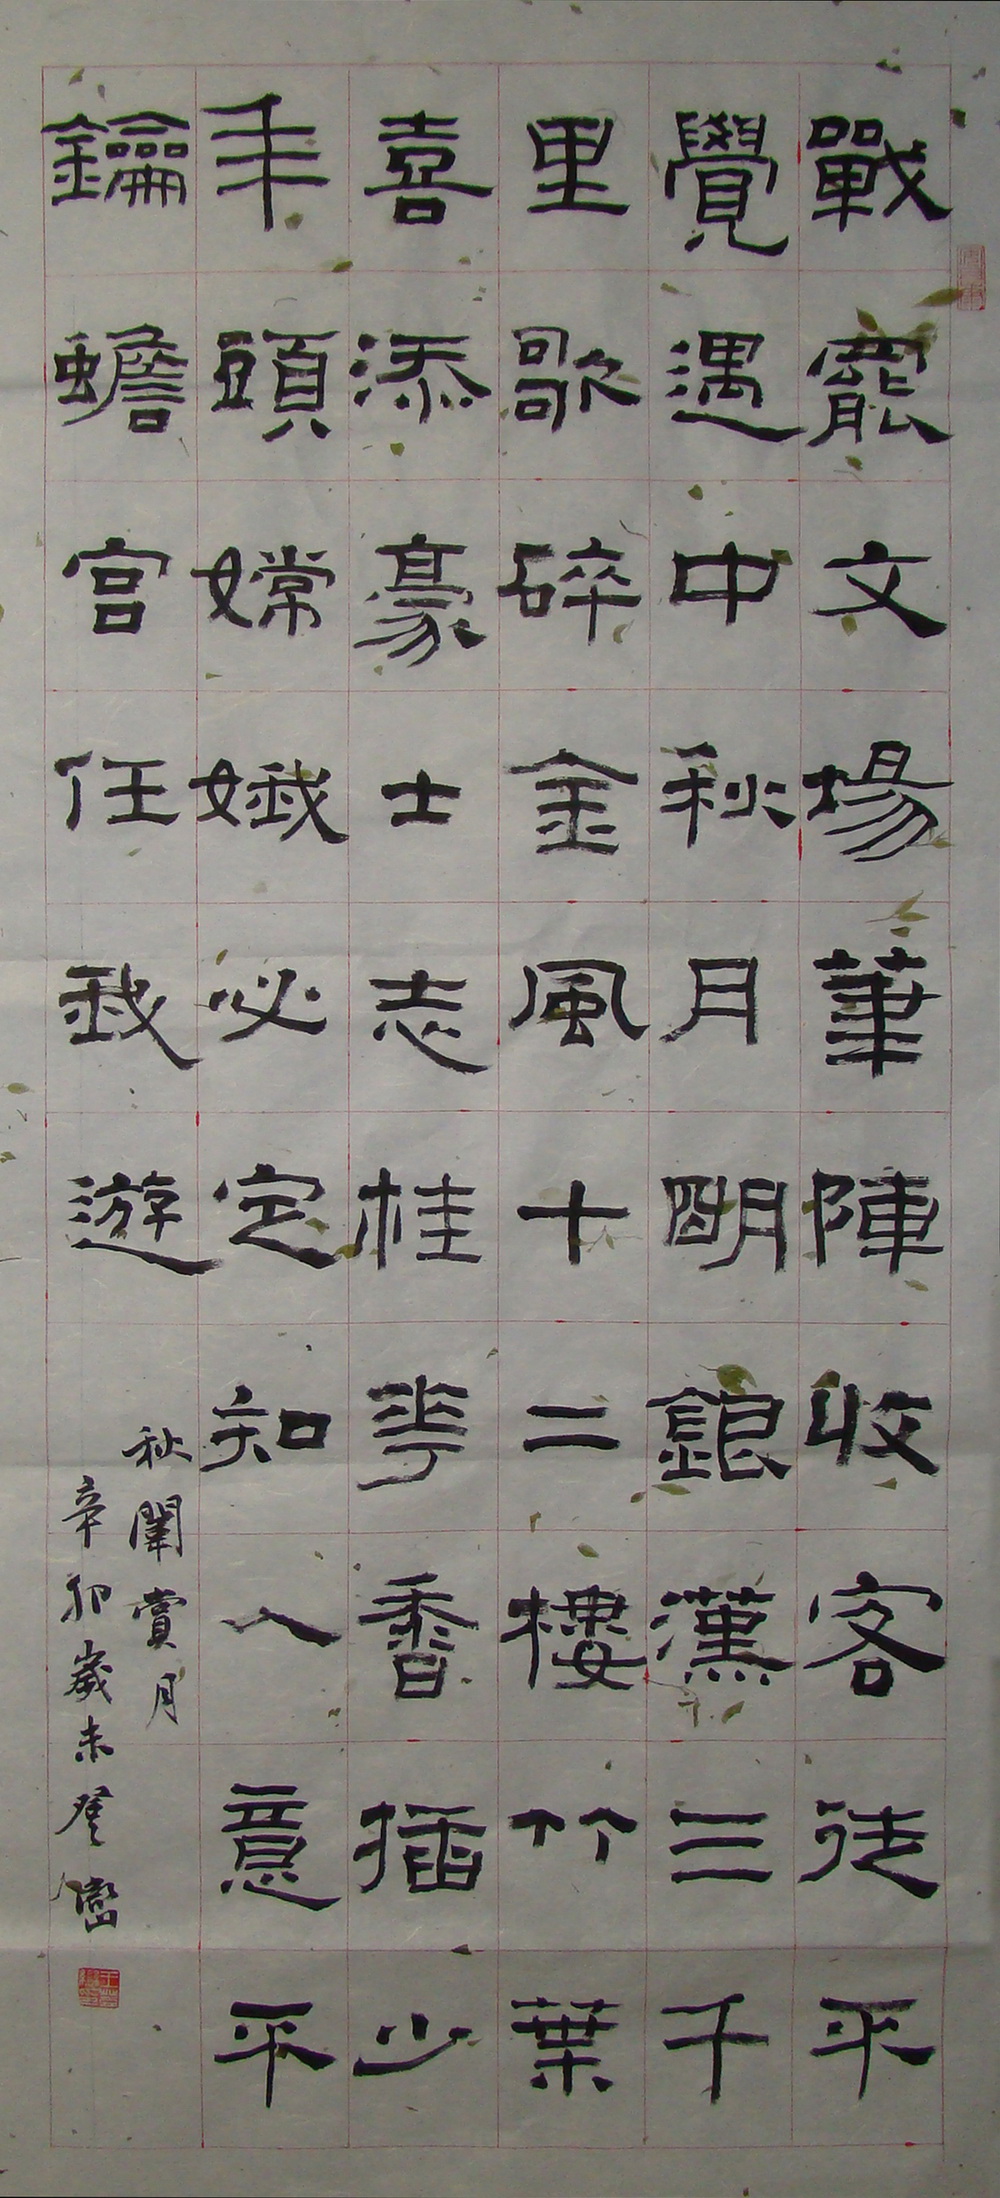 戰罷文場筆陣收客徒平
覺遇中秋月明銀漢三千
里歌碎金風十二樓竹葉
喜添豪士志桂花香插少
年頭嫦娥必定知人意平
鑰蟾宮任我遊
秋闈賞月
辛卯歲末